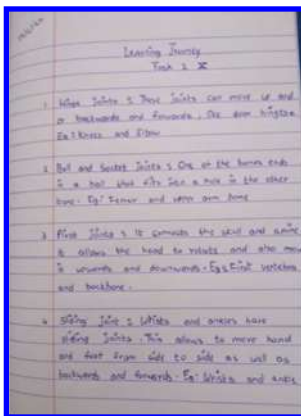 Learning Journey
Task 2
1. Hinge Joints : These Joints can move up and
or backwards and forwards, like door hinges.
Eg: Knees and Elbow
2. Ball and Socket Joints : One of the bones ends
in a ball that fits into a hole in the other
bone. Eg: Femur and upper arm bone
3. Pivot Joints : It connects the skull and spine
It allows the head to rotate and also move
in upwards and downwards. Eg: First vertebra
and backbone.
4. Sliding Joint : Wrists and ankles have
sliding Joints. This allows to move hand
and foot from side to side as well as
backwards and forwards. Eg: Wrists and ankle